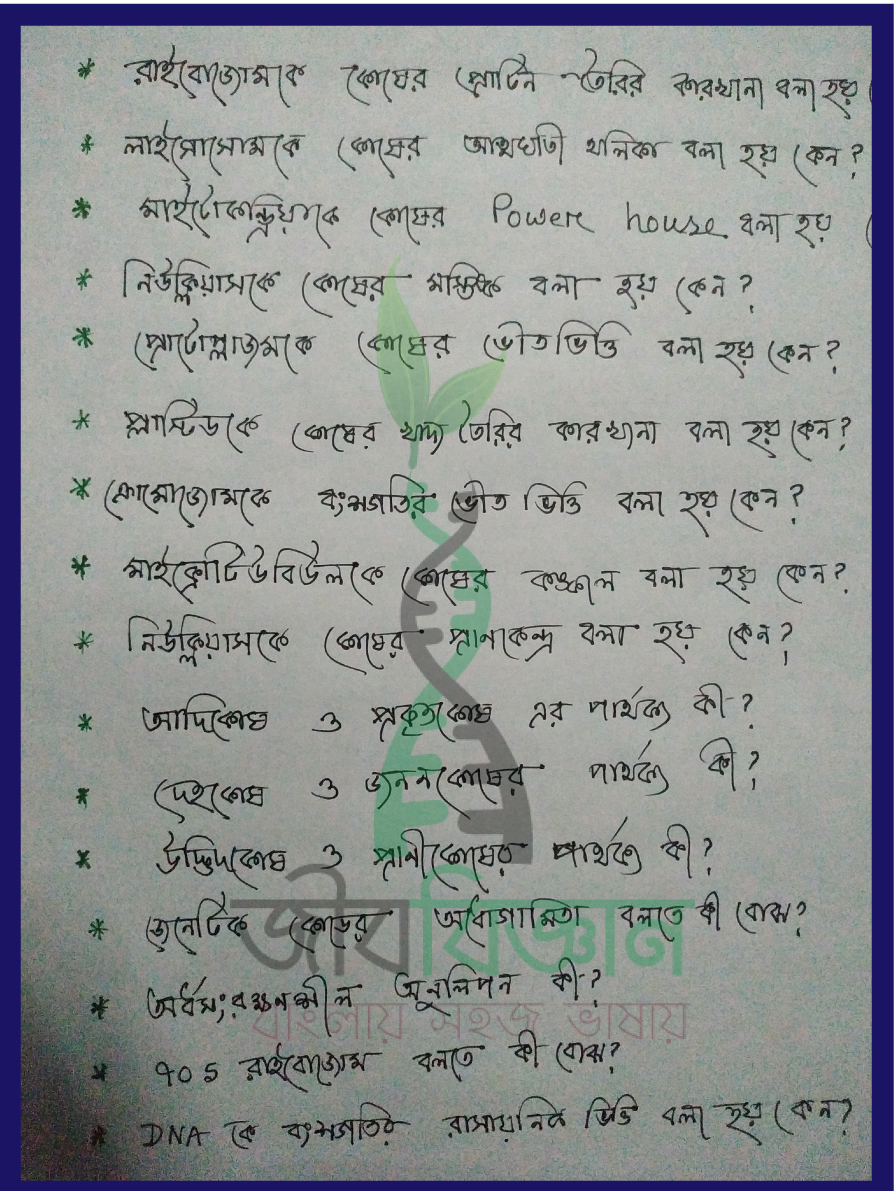 * রাইবোজোমকে কোষের প্রোটিন তৈরির কারখানা বলা হয়
* লাইসোসোমকে কোষের আত্মঘাতী থলিকা বলা হয় কেন?
* মাইটোকন্ড্রিয়াকে কোষের Power house বলা হয়
* নিউক্লিয়াসকে কোষের মস্তিষ্ক বলা হয় কেন?
* প্রোটোপ্লাজমকে কোষের ভৌত ভিত্তি বলা হয় কেন?
* প্লাস্টিডকে কোষের খাদ্য তৈরির কারখানা বলা হয় কেন?
* ক্রোমোজোমকে বংশগতির ভৌত ভিত্তি বলা হয় কেন?
* মাইক্রোটিউবিউলকে কোষের কঙ্কাল বলা হয় কেন?
* নিউক্লিয়াসকে কোষের প্রাণকেন্দ্র বলা হয় কেন?
* আদিকোষ ও প্রকৃতকোষ এর পার্থক্য কী?
* দেহকোষ ও জননকোষের পার্থক্য কী?
* উদ্ভিদকোষ ও প্রানীকোষের পার্থক্য কী?
* জেনেটিক কোডের অধোগামিতা বলতে কী বোঝ?
* অর্ধসংরক্ষনশীল অনুলিপন কী?
* 70 S রাইবোজোম বলতে কী বোঝ?
* DNA কে বংশগতির রাসায়নিক ভিত্তি বলা হয় কেন?
জীববিজ্ঞান
বাংলায় সহজ ভাষায়